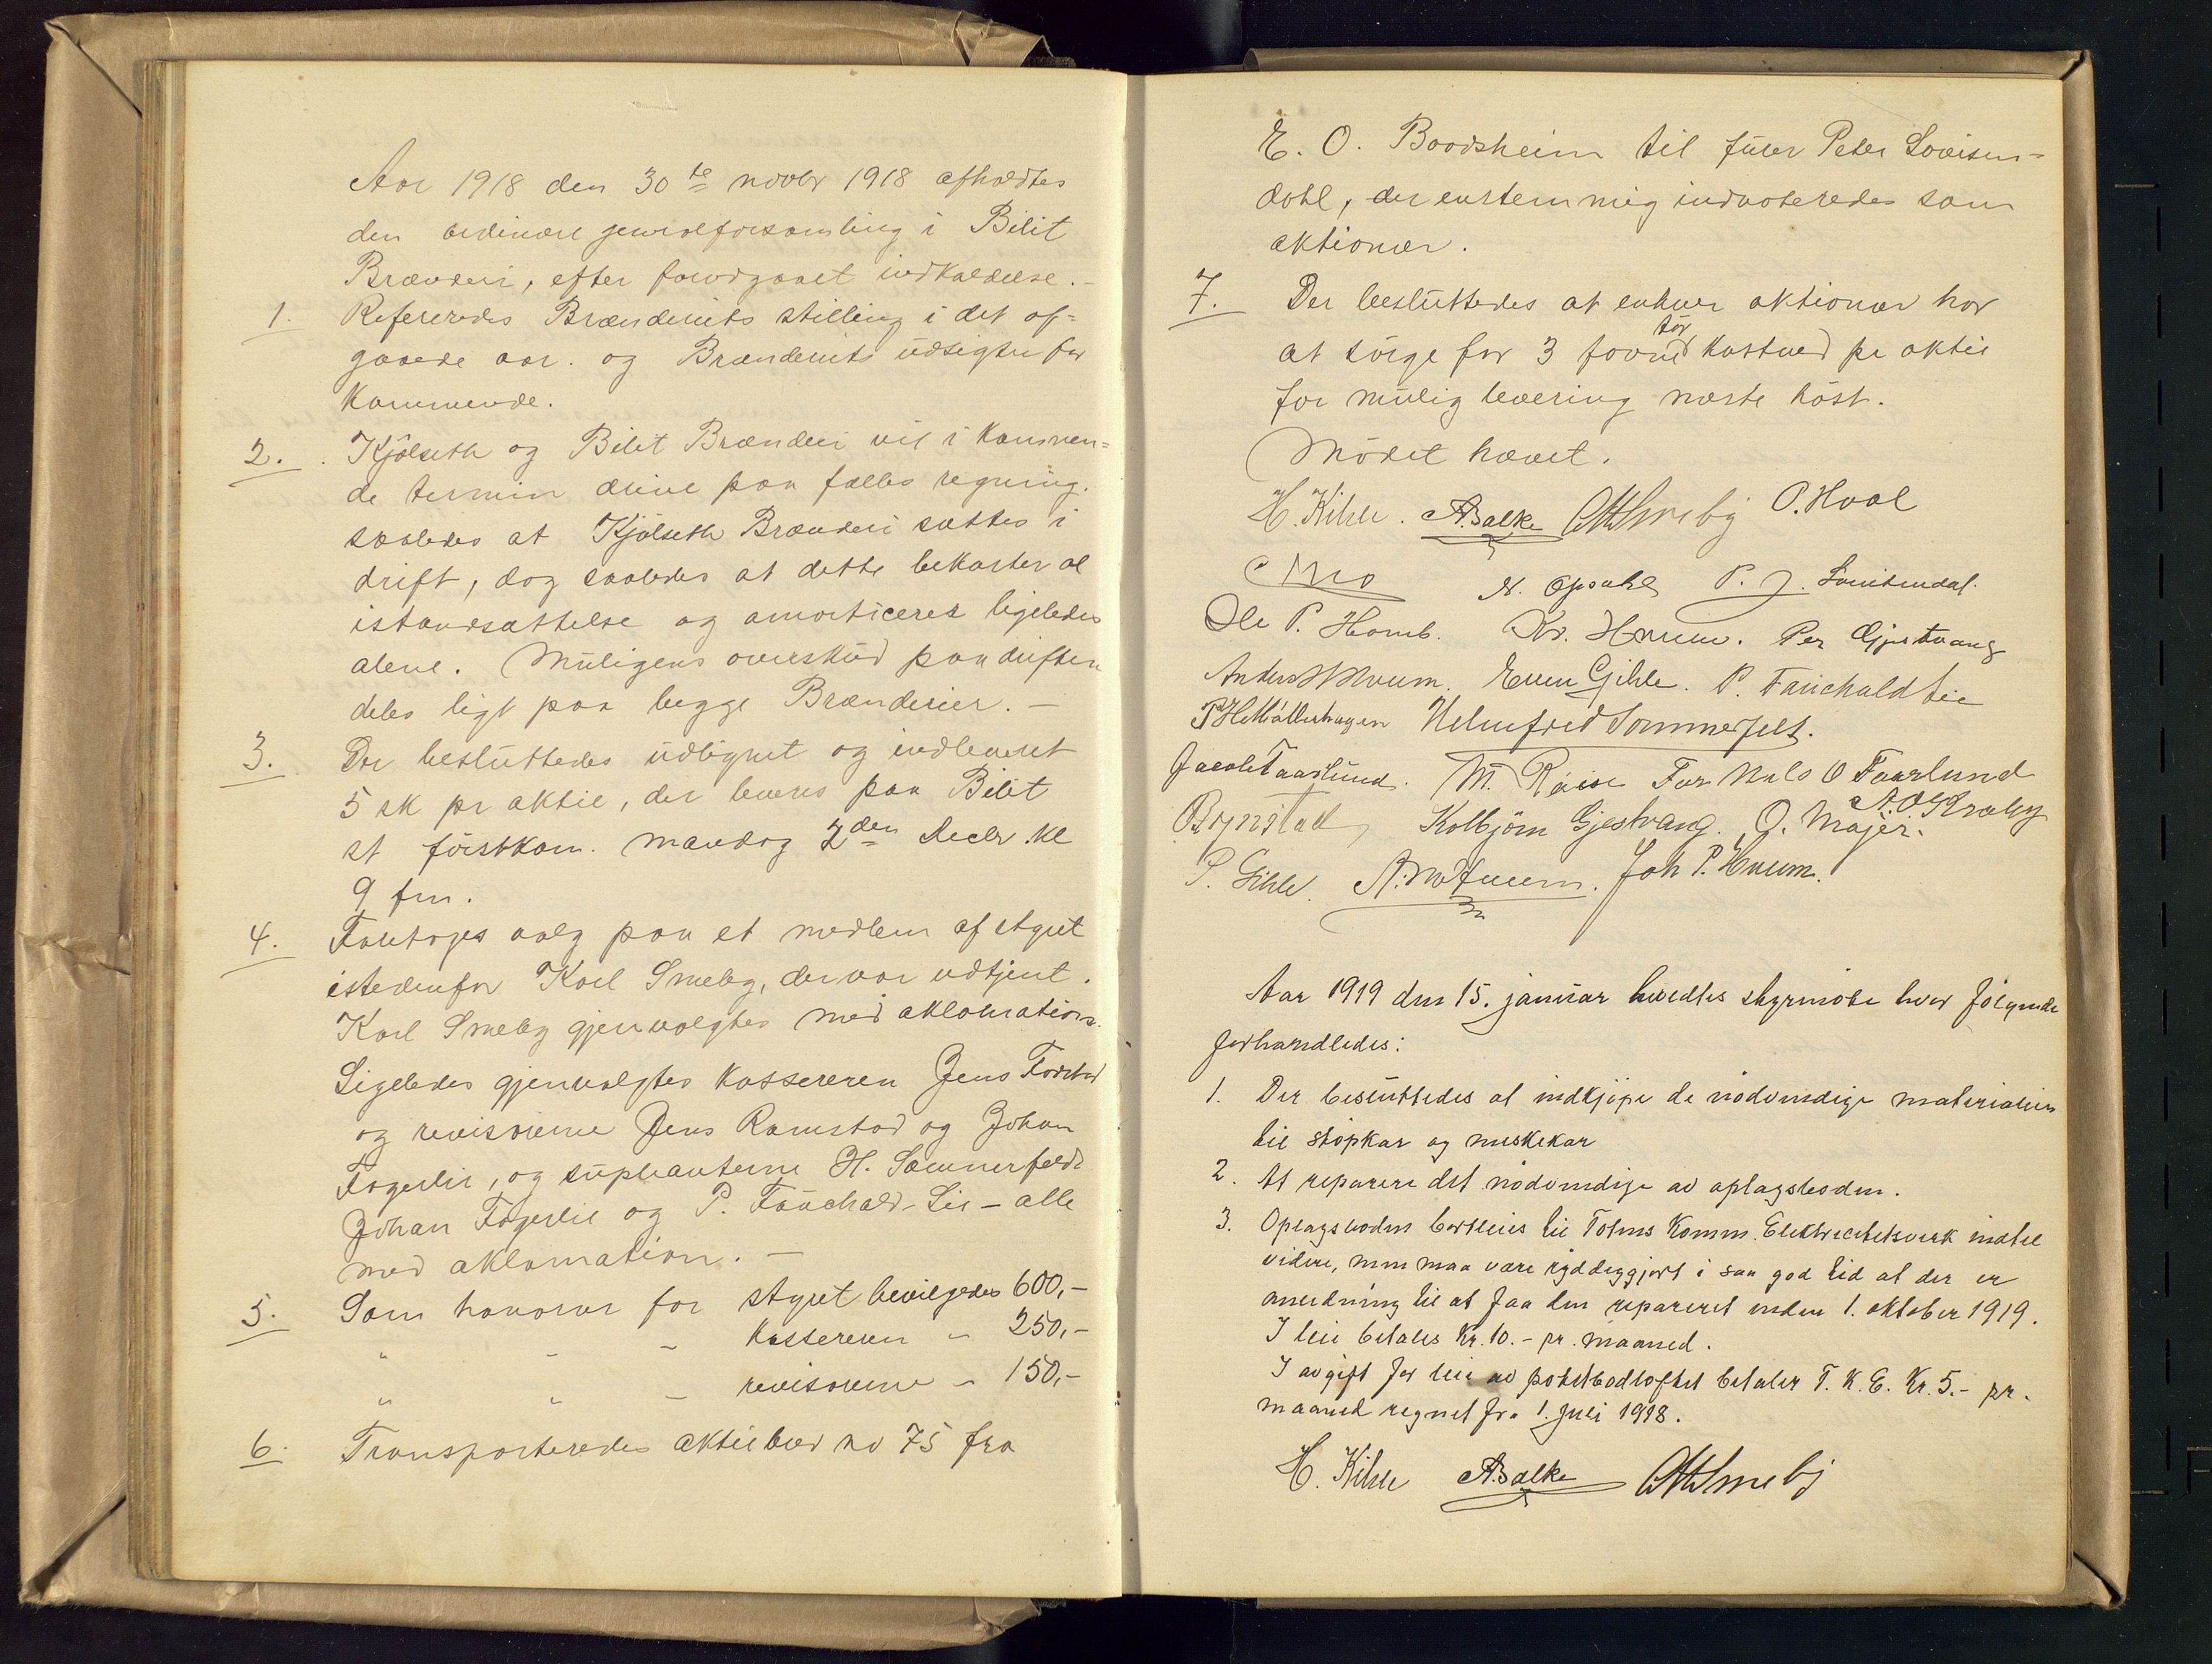 Aar 1918 den 30te novbr 1918 afholdtes
den ordinære generalforsamling i Bilit
Brænderi, efter forudgaaet indkaldelse.-
1. Refereredes Brænderiets stilling i det af=
gaaede aar. og Brænderiets udsigter for
Kommende.
2. Kjölseth og Bilit Brænderi vil i kommen=
de termin drive paa fælles regning.
saaledes at Kjölseth Brænderi sættes i
drift, dog saaledes at dette bekoster al
istandsættelse og amorticeres ligeledes
alene. Muligens overskud paa driften
deles ligt paa begge Brænderier. -
3. Der besluttedes udlignet og indleveret
5 sk pr aktie, der leveres paa Bilit
st förstkom. mandag 2den Decbr. kl
9 fm.
4. Foretoges valg paa et medlem af styret
istedenfor Karl Smeby, der var udtjent.
Karl Smeby gjenvalgtes med aklamation.
Ligeledes gjenvalgtes kassereren Jens Fodstad
og revisorerne Jens Ramstad og Johan
Fagerlie, og suplianterne H. Sommerfeldt
Johan Fagerlie og P. Fauchald-Lie - alle
med aklamation. -
5. Som honorar for styret bevilgedes 600,-
" - - Kassereren - 250,-
" - - revisorerne - 150,-
6. Transporteredes aktiebrev no 75 fra
E. O. Bondsheim til fuler Peter Lovisen=
dahl, der enstemmig indvoteredes som
aktionær.
7. Der besluttedes at enhver aktionær har
at sörge for 3 favne tör kastved pr aktie
for mulig levering næste höst.
Mödet hævet.
H. Kihle. A. Balke O M Smeby P. Hval
C Mo N. Opsahl P. J. Lovisendal.
Ole P. Homb. Kr. Hveem. Per Gjestvang
Anders Hveem. Even Gihle. P. Fauchald Lie
P H Möllerhagen Helmfred Sommerfelt.
Jacob Faarlund. M. Röise For Nils O Faarlund
Rynstad Kolbjörn Gjestvang. O. Majer. A. O. Kraby
P. Gihle. Joh P. Hveem.
Aar 1919 den 15. januar holdtes styrmöte hvor fölgende
forhandledes:
1. Der besluttedes at indkjöpe de nödvendige materialier
til stöpkar og meskekar
2. At reparere det nödvendige av oplagsboden.
3. Oplagsboden bortleies til Totens Komm. Elektricitetsverk indtil
videre, men maa være ryddiggjort i saa god tid at der er
anledning til at faa den reparert inden 1. oktober 1919.
I leie betales Kr. 10.- pr. maaned.
I avgift for leie av potetbodloftet betaler T. K. E. Kr. 5.- pr.
maaned regnet fra 1. juli 1918.
H. Kihle A. Balke O M Smeby